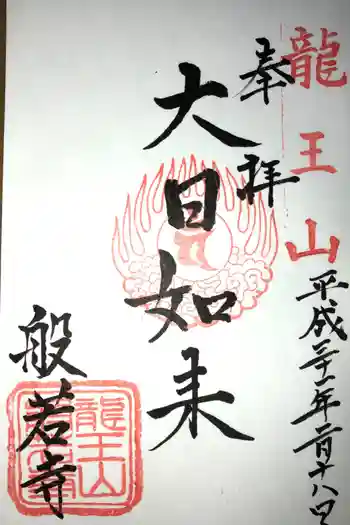 龍王山
奉拝
平成三十一年二月十八日
大日如来
般若寺
龍王山